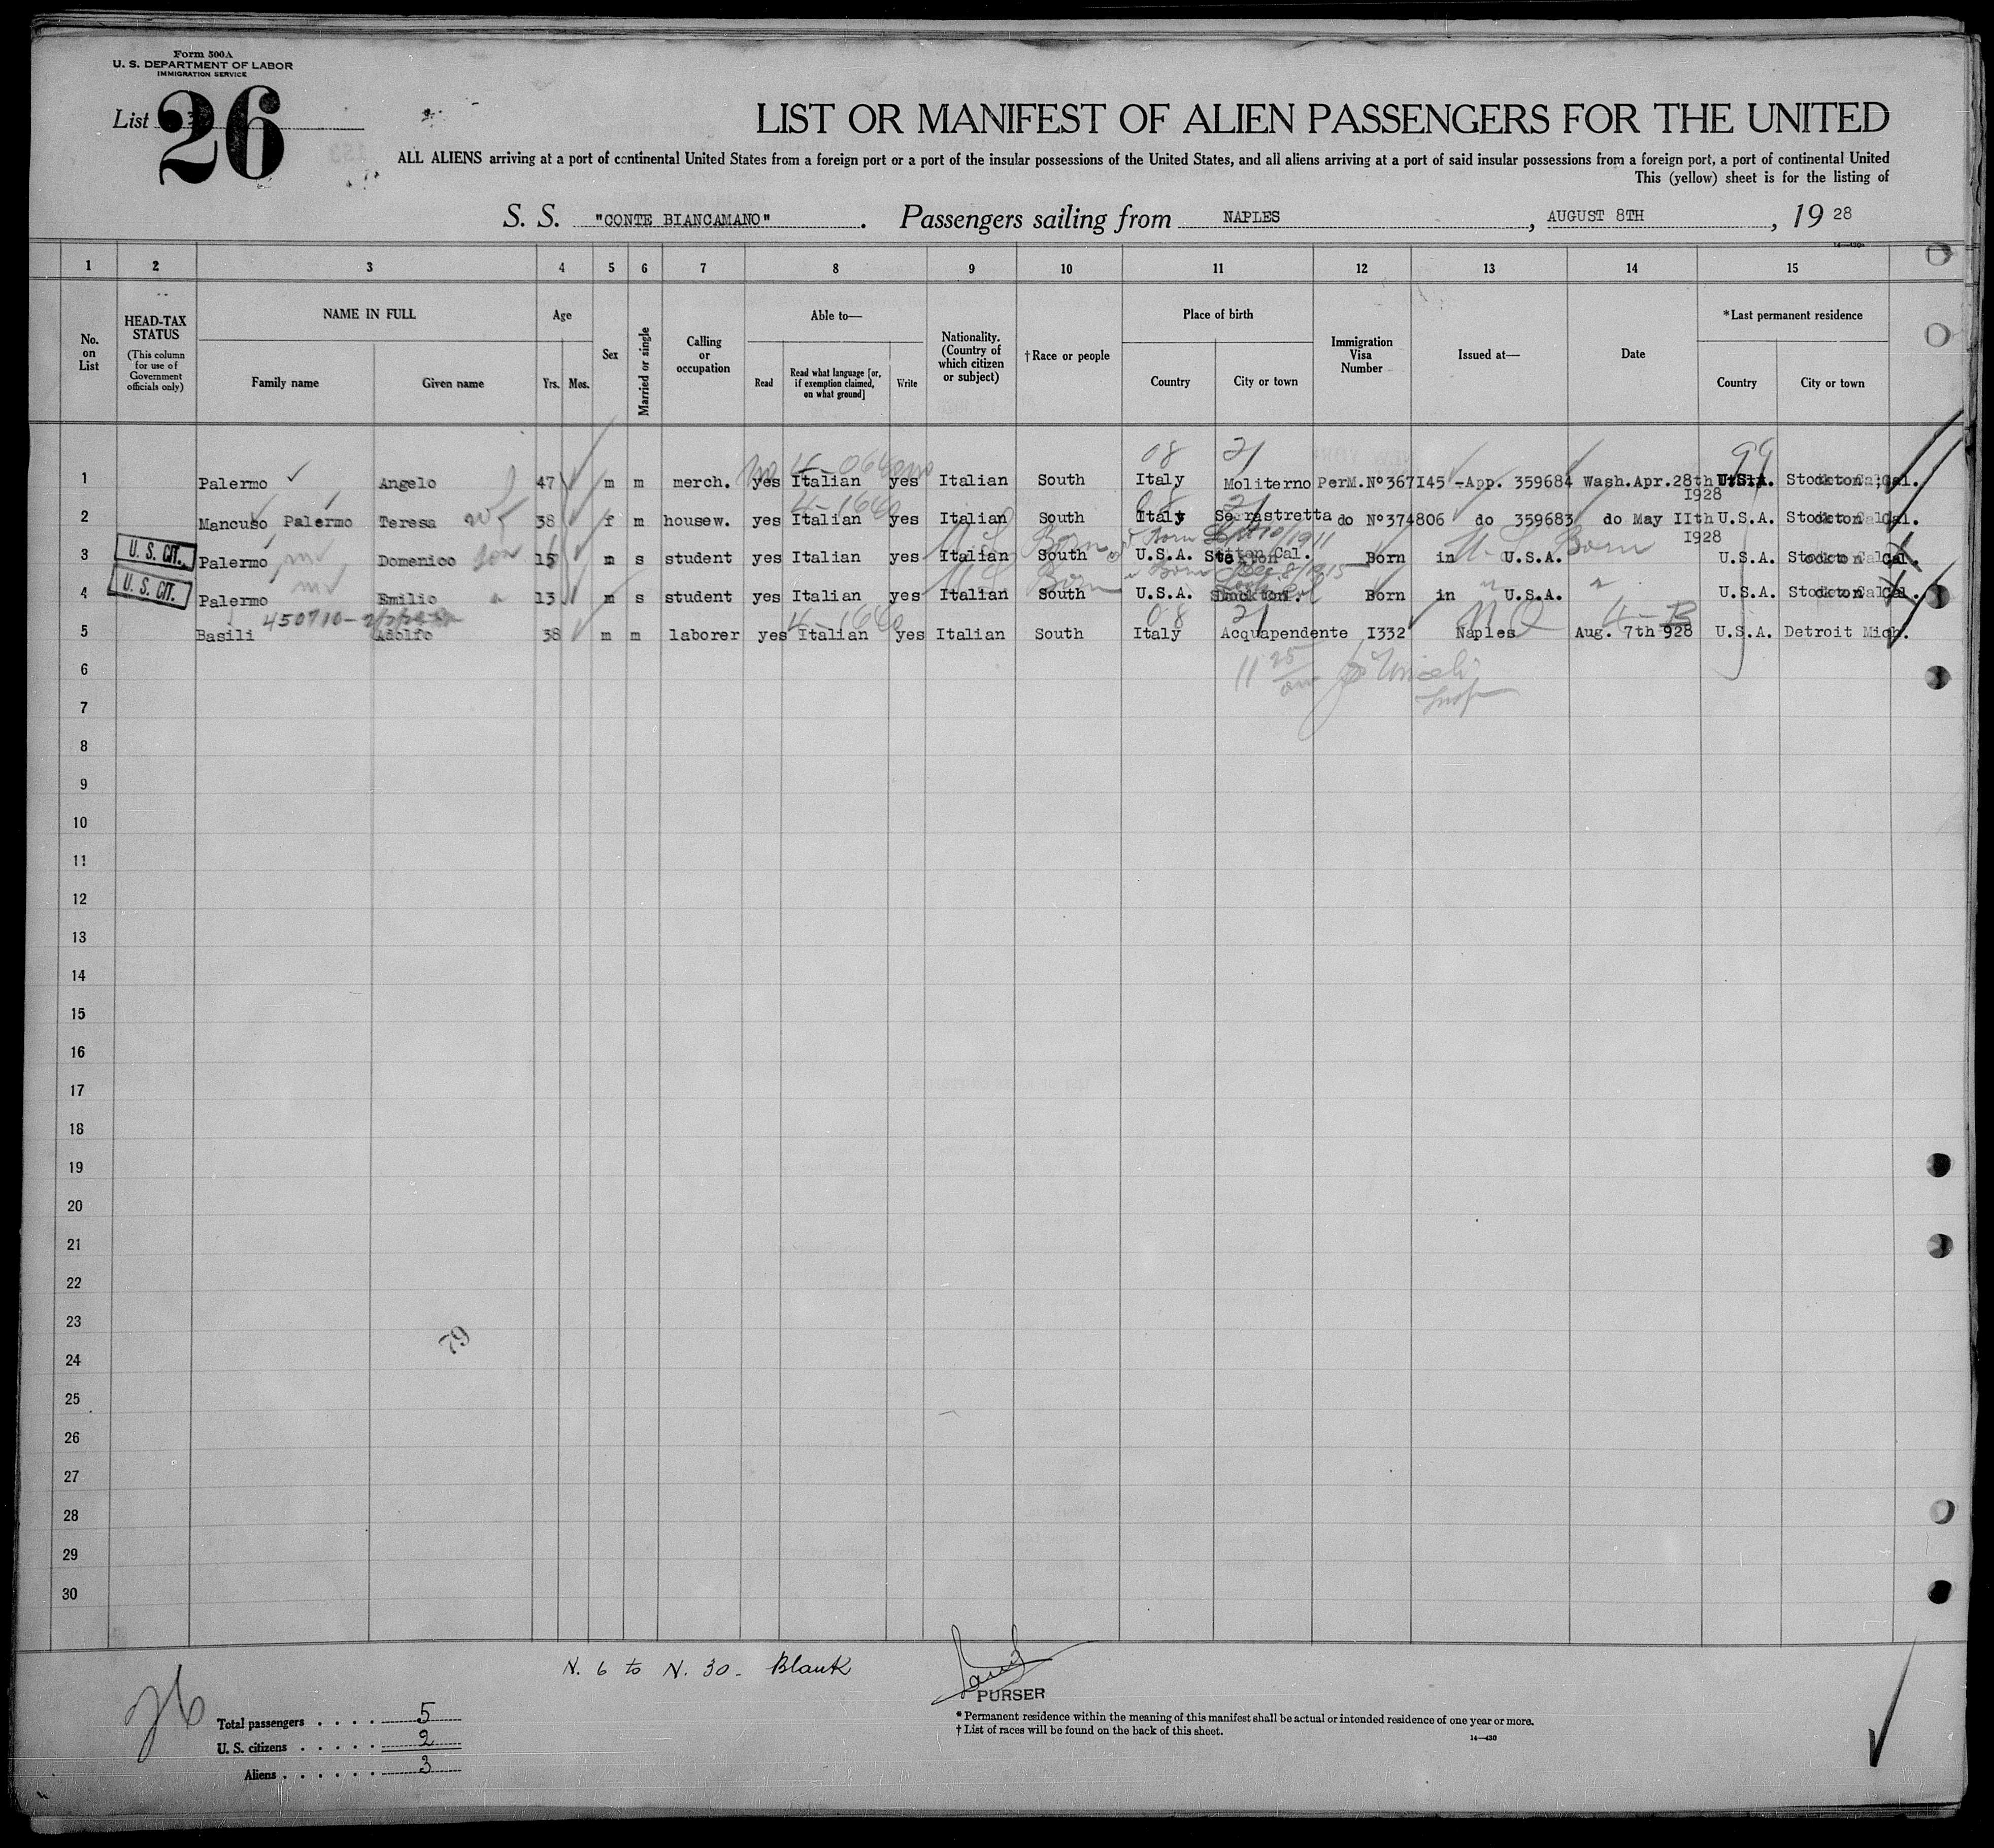 Form 500A
U. S. DEPARTMENT OF LABOR
IMMIGRATION SERVICE
List 26
LIST OR MANIFEST OF ALIEN PASSENGERS FOR THE UNITED
ALL ALIENS arriving at a port of continental United States from a foreign port or a port of the insular possessions of the United States, and all aliens arriving at a port of said insular possessions from a foreign port, a port of continental United
This (yellow) sheet is for the listing of
S. S. "CONTE BIANCAMANO". Passengers sailing from NAPLES, AUGUST 8TH, 19 28
14—430
1 2 3 4 5 6 7 8 9 10 11 12 13 14 15
No. on List
HEAD-TAX STATUS (This column for use of Government officials only)
NAME IN FULL Family name Given name
Age Yrs. Mos.
Sex
Married or single
Calling or occupation
Able to— Read Read what language [or, if exemption claimed, on what ground] Write
Nationality. (Country of which citizen or subject)
†Race or people
Place of birth Country City or town
Immigration Visa Number
Issued at—
Date
*Last permanent residence Country City or town
no 4-064 08 21 99
1 Palermo Angelo 47 m m merch. yes Italian yes Italian South Italy Moliterno PerM.Nº367I45 -App. 359684 Wash.Apr.28th I928 U.S.A. Stockton Cal.
08 21
2 Mancuso Palermo Teresa wf 38 f m housew. yes Italian yes Italian South Italy Serrastretta do Nº374806 do 359683 do May IIth I928 U.S.A. Stockton Cal.
U.S. Born Born 10/1911 U.S. Born
U. S. CIT. 3 Palermo Domenico son 15 m s student yes Italian yes Italian South U.S.A. Stockton Cal. Born in U.S.A. U.S.A. Stockton Cal.
U.S. Born Born Dec 8/1915
U. S. CIT. 4 Palermo Emilio 13 m s student yes Italian yes Italian South U.S.A. Born in U.S.A. U.S.A. Stockton Cal.
450710- 08 21
5 Basili Adolfo 38 m m laborer yes Italian yes Italian South Italy Acquapendente I332 Naples Aug. 7th 928 U.S.A. Detroit Mich.
6
11 25/am
7
8
9
10
11
12
13
14
15
16
17
18
19
20
21
22
23
79
24
25
26
27
28
29
30
N. 6 to N. 30 - Blank
PURSER
Total passengers . . . . 5
U. S. citizens . . . . . 2
Aliens . . . . . . 3
* Permanent residence within the meaning of this manifest shall be actual or intended residence of one year or more.
† List of races will be found on the back of this sheet.
14—430